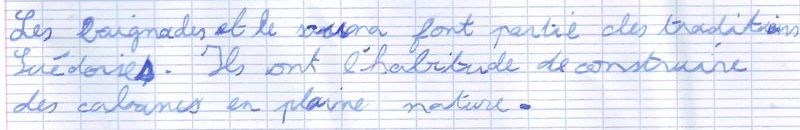 Les baignades et le sauna font partie des traditions
Suédoises. Ils ont l'habitude de construire
des cabanes en pleine nature.